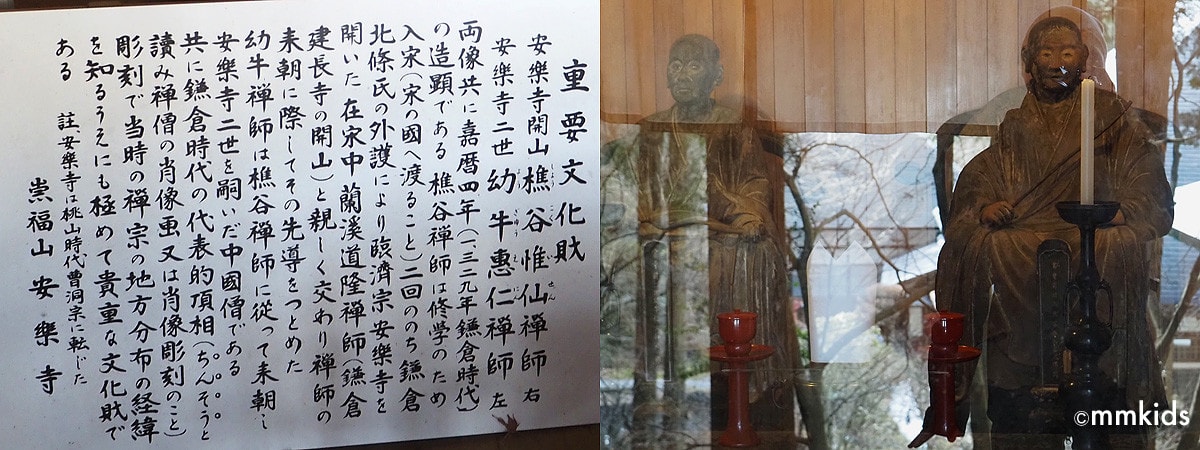 重要文化財
安樂寺開山樵谷惟仙禅師 右
安樂寺二世幼牛惠仁禅師 左
両像共に嘉暦四年(一三二九年鎌倉時代)
の造顕である 樵谷禅師は修学のため
入宋(宋の國へ渡ること)二回ののち鎌倉
北條氏の外護により臨済宗安樂寺を
開いた 在宋中 蘭溪道隆禅師(鎌倉
建長寺の開山)と親しく交わり禅師の
来朝に際してその先導をつとめた
幼牛禅師は樵谷禅師に從って来朝し
安樂寺二世を嗣いだ中國僧である
共に鎌倉時代の代表的頂相(ちんそうと
讀み禅僧の肖像画又は肖像彫刻のこと)
彫刻で当時の禅宗の地方分布の経緯
を知るうえにも極めて貴重な文化財で
ある 註、安樂寺は桃山時代曹洞宗に転じた
崇福山 安樂寺
©mmkids